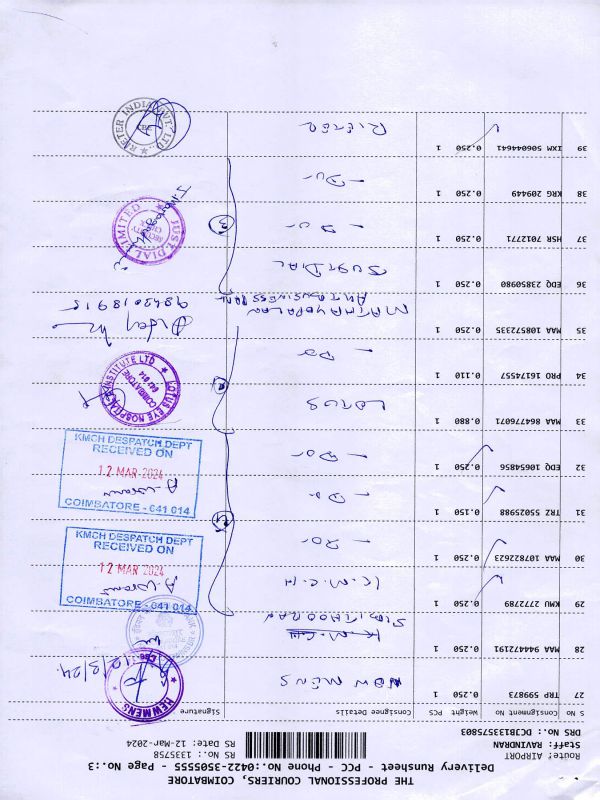 THE PROFESSIONAL COURIERS, COIMBATORE
Delivery Runsheet - PCC - Phone No.:0422-3505555 - Page No.:3
Route: AIRPORT
Staff: RAVINDRAN
DRS No.: DCB133575803
RS No.: 1335758
RS Date: 12-Mar-2024
S No Consignment No Weight PCS Consignee details Signature
27 TRP 599873 0.250 1 NEWMENS
HEWMENS
CBE
12/3/24
28 MAA 944472191 0.250 1 K.M.C.H
29 KMU 2772789 0.250 1 K.M.C.H
30 MAA 107822623 0.250 1 - Do -
KMCH DESPATCH DEPT
RECEIVED ON
12 MAR 2024
COIMBATORE - 641 014
31 TRZ 55025988 0.150 1 - Do -
32 EDQ 10654856 0.250 1 - Do -
KMCH DESPATCH DEPT
RECEIVED ON
12 MAR 2024
COIMBATORE - 641 014
33 MAA 864776071 0.880 1 LOTUS
34 PRO 16174557 0.110 1 - Do
LOTUS EYE HOSPITAL & INSTITUTE LTD
COIMBATORE
641 014
35 MAA 108572335 0.250 1 MATHRUBOPALAN
ART BUSINESS PARK
9842018915
36 EDQ 23850980 0.250 1 JUST DIAL
37 HSR 7012771 0.250 1 - Du -
38 KRG 209449 0.250 1 - Du -
3
JUST DIAL LIMITED
39 IXM 506044641 0.250 1 RIETER
RIETER INDIA PVT LTD